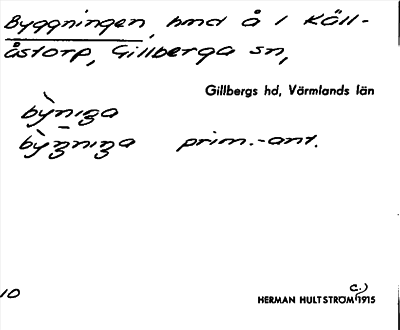 Byggningen, hmd å 1 Käll-
åstorp, Gillberga sn,
Gillbergs hd, Värmlands län
bỳniga
prim.-ant.
10
HERMAN HULTSTRÖM (c.) 1915